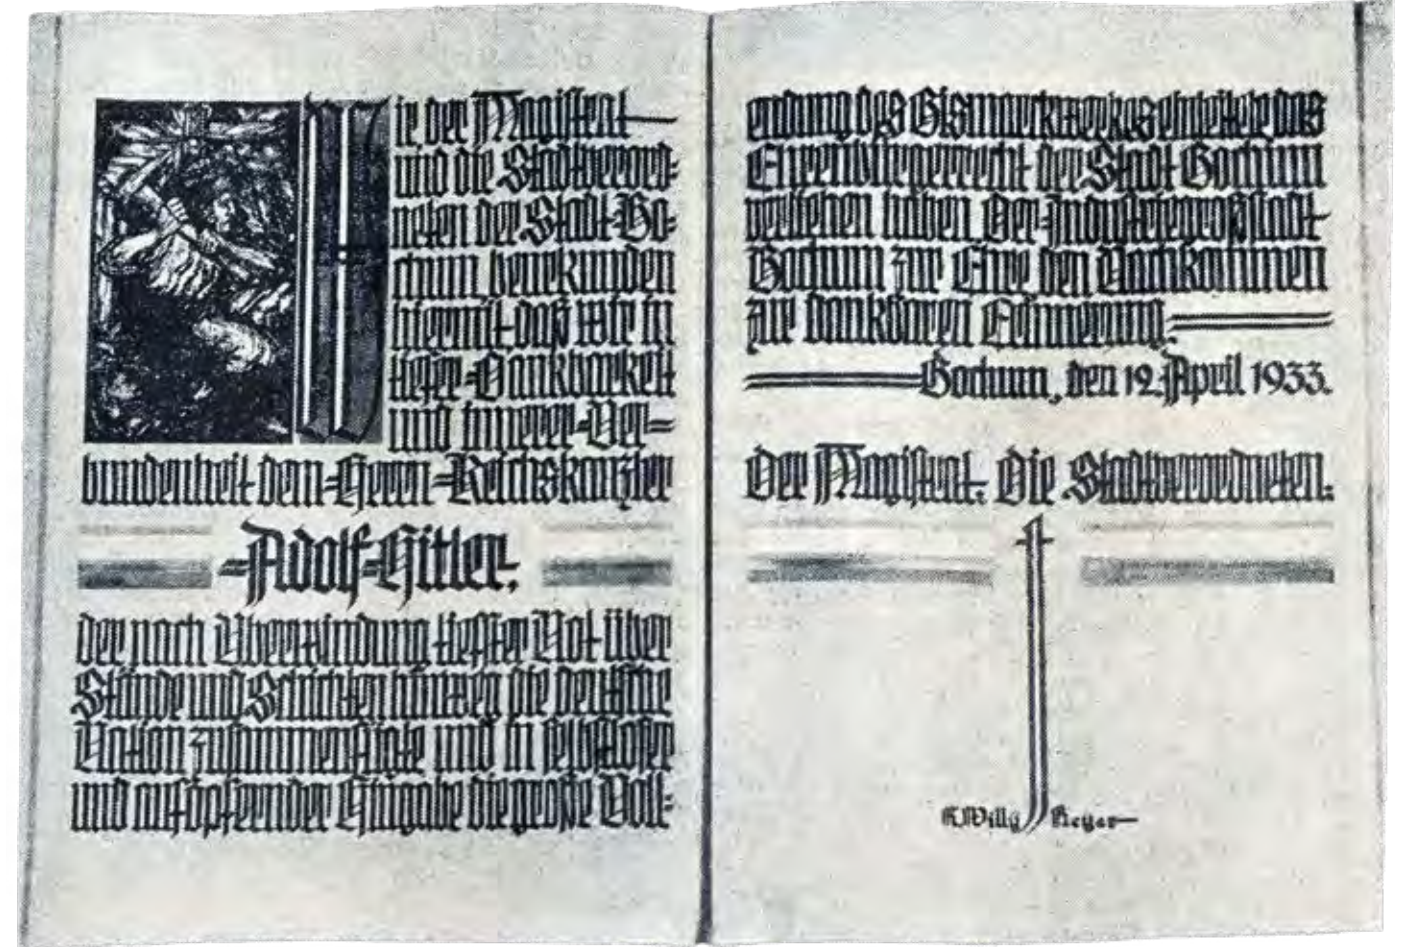 Wir der Magistrat
und die Stadtverord=
neten der Stadt=Bo=
chum beurkunden
hiermit daß wir in
tiefer=Dankbarkeit
und innerer=Ver=
bundenheit dem=Herrn=Reichskanzler
=Adolf=Hitler,
der nach Überwindung tiefster Not über
Stände und Schichten hinweg die deutsche
Nation zusammenfügte und in selbstloser
und aufopfernder Hingabe die große Voll=
endung des Bismarckwerkes das
Ehrenbürgerrecht der Stadt Bochum
verliehen haben Der Industriegroßstadt
Bochum zur Ehre den Nachkommen
zur dankbaren Erinnerung.
Bochum, den 12. April 1933.
Der Magistrat. Die Stadtverordneten:
K. Willy